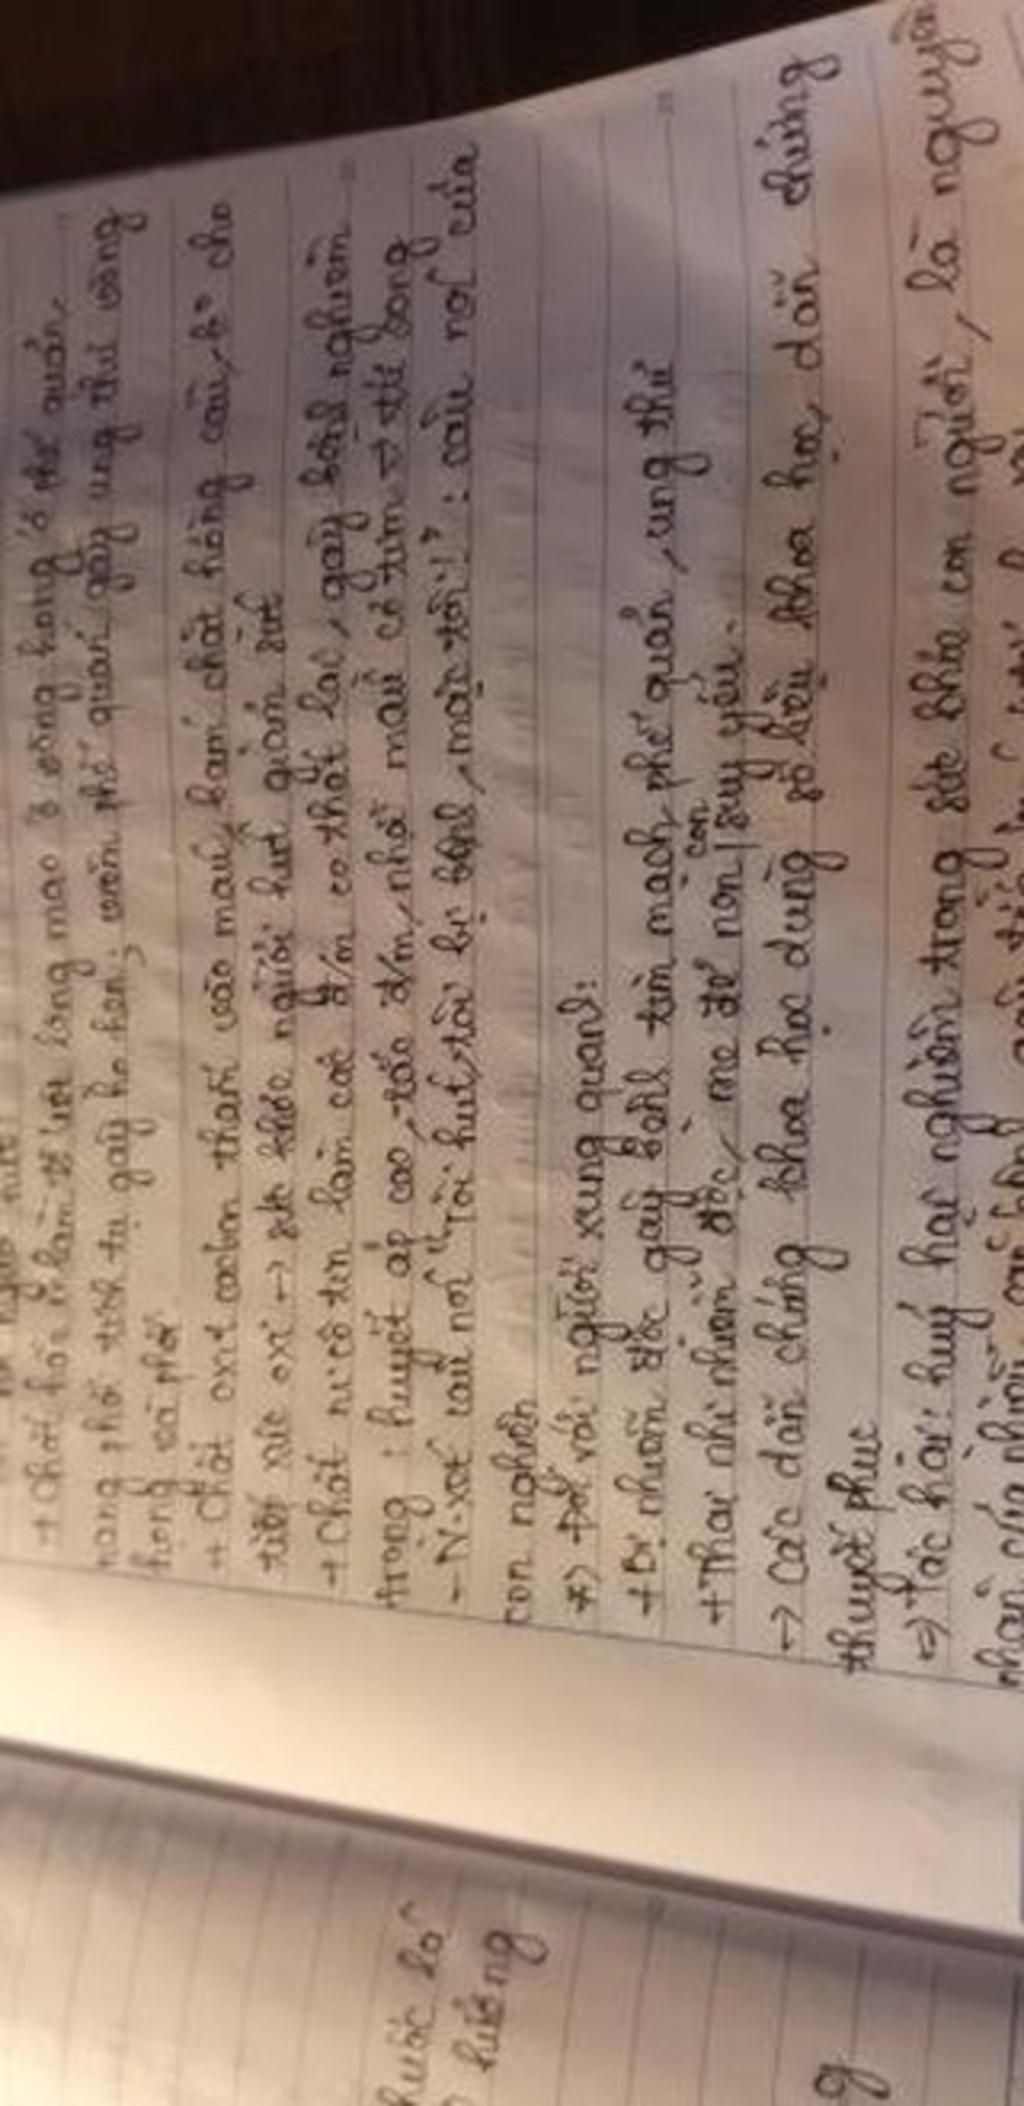 + Chất hắc ín làm tê liệt lông mao ở vòng họng ở phế quản,
nang phổi tích tụ gây ho hen; viêm phế quản gây ung thư vòng
họng và phổi
+ Chất oxit cacbon thấm vào máu, bám chặt hồng cầu, ko cho
tiếp xúc oxi → sk khỏe người hút giảm sút
+ Chất nicôtin làm các đ/m co thắt lại, gây bệnh nghiêm
trọng: huyết áp cao, tắc đ/m, nhồi máu cơ tim → tử vong
- N.xét câu nói "Tôi hút, tôi bị bệnh, mặc tôi!": câu nói của
con nghiện
*) Đối với người xung quanh:
+ Bị nhiễm độc gây bệnh tim mạch, phế quản, ung thư
+ Thai nhi nhiễm độc, mẹ đẻ non, con suy yếu.
→ Các dẫn chứng khoa học dùng số liệu khoa học, dẫn chứng
thuyết phục
=> Tác hại: huỷ hoại nghiêm trọng sức khỏe con người, là nguyên
nhân của nhiều căn bệnh
huốc lá
hưởng
g